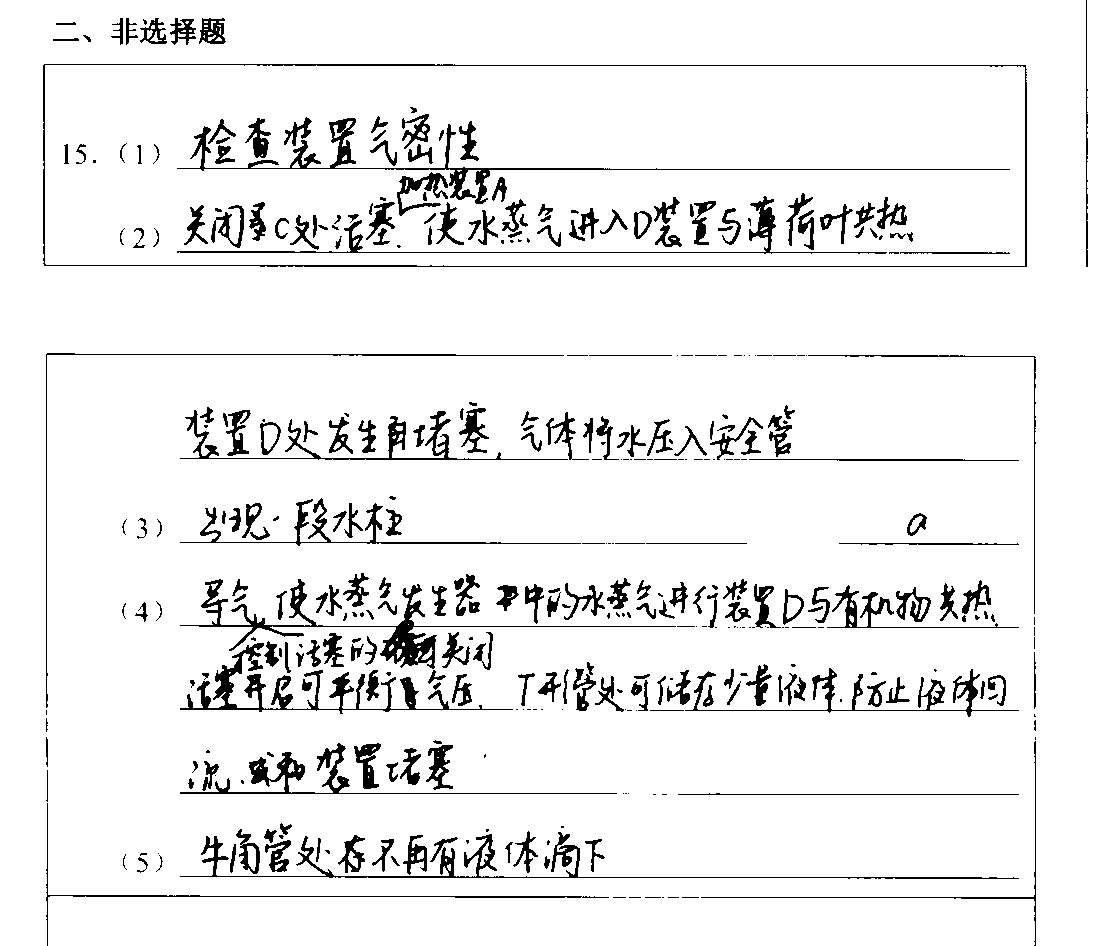 二、非选择题
15.(1) 检查装置气密性
加热装置A
(2) 关闭C处活塞,使水蒸气进入D装置与薄荷叶共热
装置D处发生堵塞,气体将水压入安全管
(3) 出现一段水柱 a
(4) 导气,使水蒸气发生器中的水蒸气进行装置D与有机物共热
控制活塞的关闭
活塞开启可平衡气压,T形管处可储存少量液体,防止液体回
流,装置堵塞
(5) 牛角管处不再有液体滴下